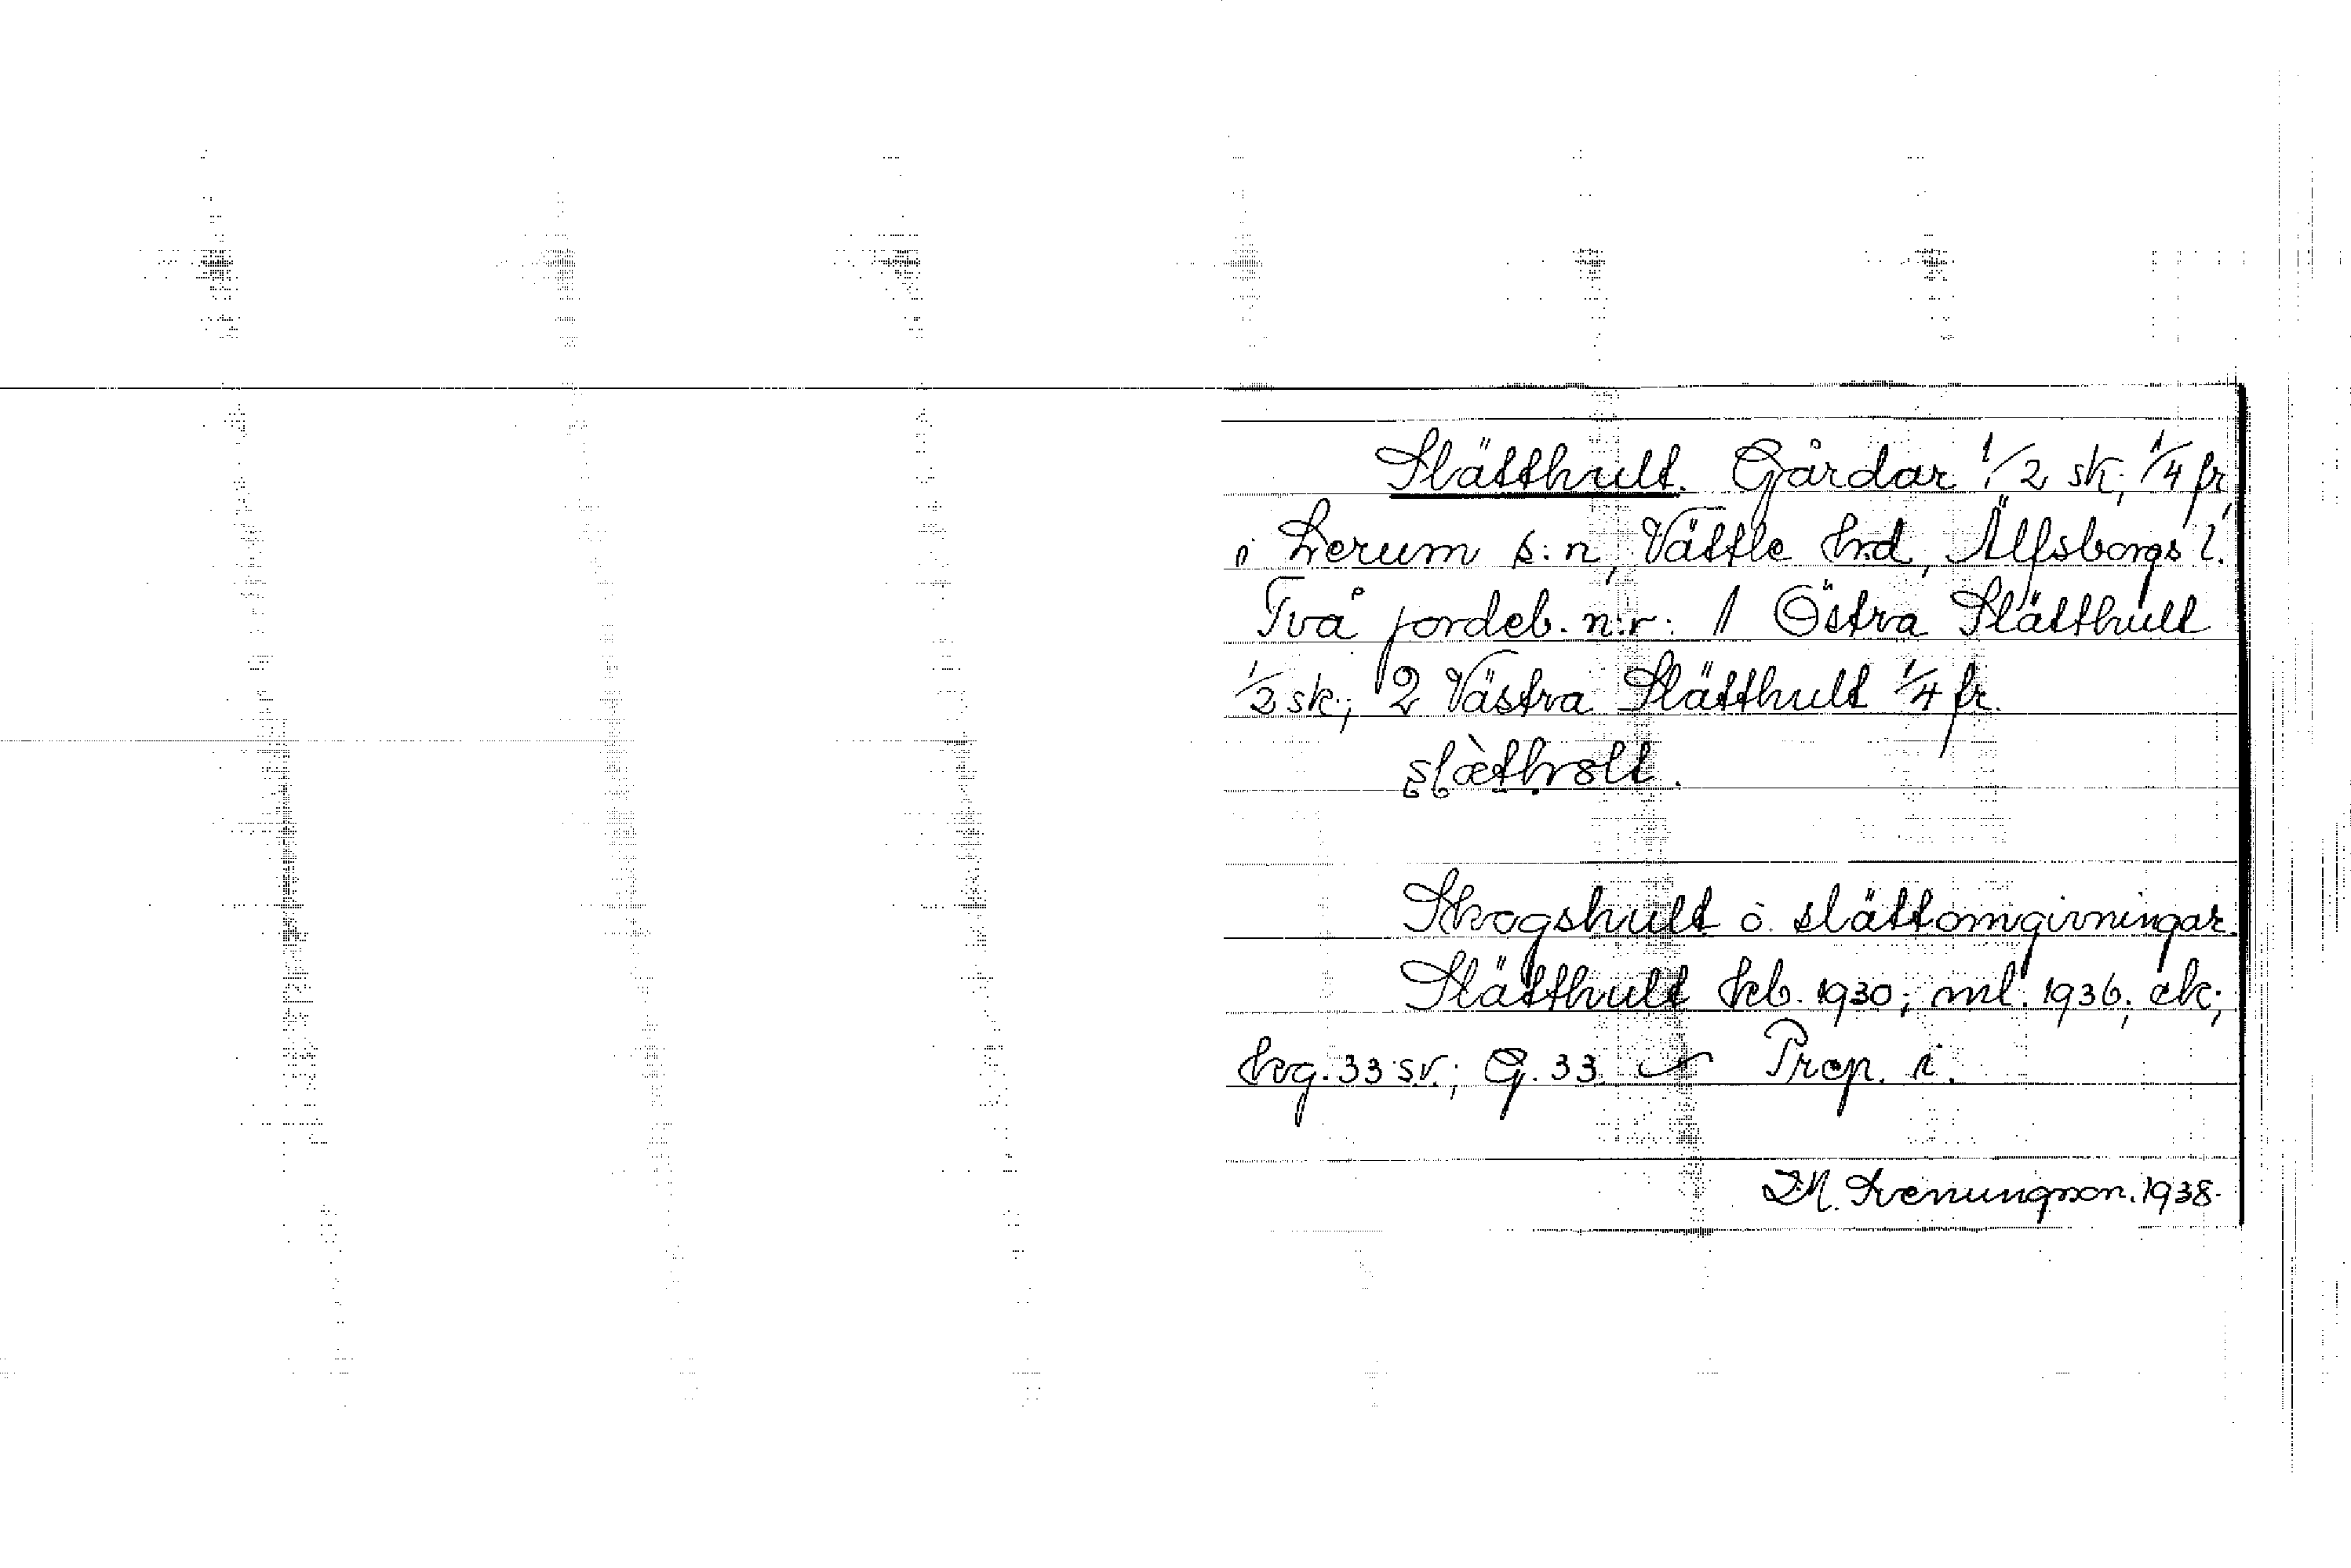 Slätthult. Gårdar 1/2 sk; 1/4 fr,
i Lerum s:n, Vättle hrd, Älfsborgs l.
Två jordeb. n:r: 1 Östra Slätthult
1/2 sk; 2 Västra Slätthult 1/4 fr.
Skogshult o. slättomgivningar.
Slätthult kb. 1930; ml. 1936; ek;
hvg. 33 sv.; G. 33. Prop. i.
1938.